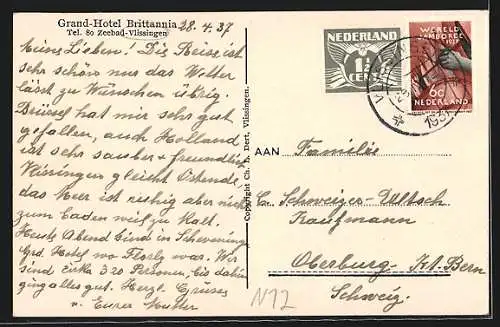 Grand-Hotel Brittannia 28.4.37
Tel. 80 Zeebad-Vlissingen.
Meine Lieben! Die Reise ist
sehr schön nur das Wetter
lässt zu Wünschen übrig.
Brüssel hat mir sehr gut
gefallen, auch Holland
ist sehr sauber & freundlich
Vlissingen gleicht Ostende,
das Meer ist ruhig aber nicht
zum baden weil zu kalt.
Heute Abend sind in Schevening
Grd. Hotel wo Florly war. Wir
sind zirka 320 Personen, bis dahin
ging alles gut. Herzl. Grüsse
v. Eurer Mutter
Copyright Ch. L. Dert, Vlissingen.
NEDERLAND
1½
CENT
WERELD
JAMBOREE
1937
6c
NEDERLAND
1937
AAN Familie
C. Schweizer-Ultsch
Kaufmann
Oberburg Kt. Bern
Schweiz.
N12